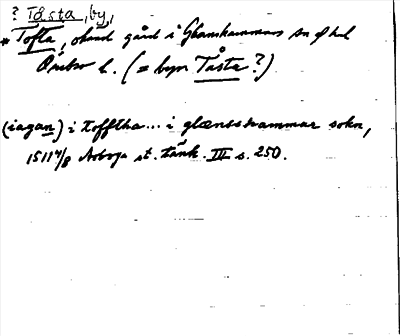 ? Tåsta, by,
* Tofta, okänd gård i Glanshammars sn o hd
Örebro l. (= byn Tåsta?)
(iagan) i tofftha... i glænsshammar sokn,
1511 4/8 Arboga st. tänk. III s. 250.